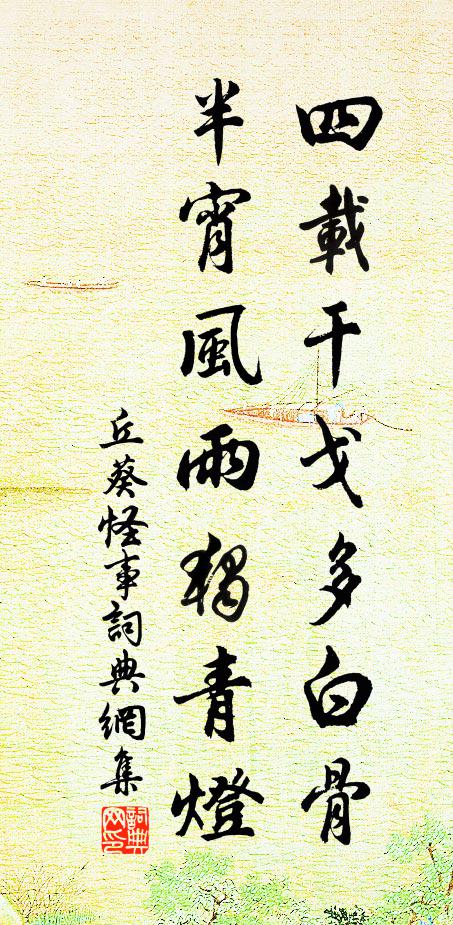 四載干戈多白骨
半宵風雨獨青燈
丘葵怪事詞典網集
詞典网印